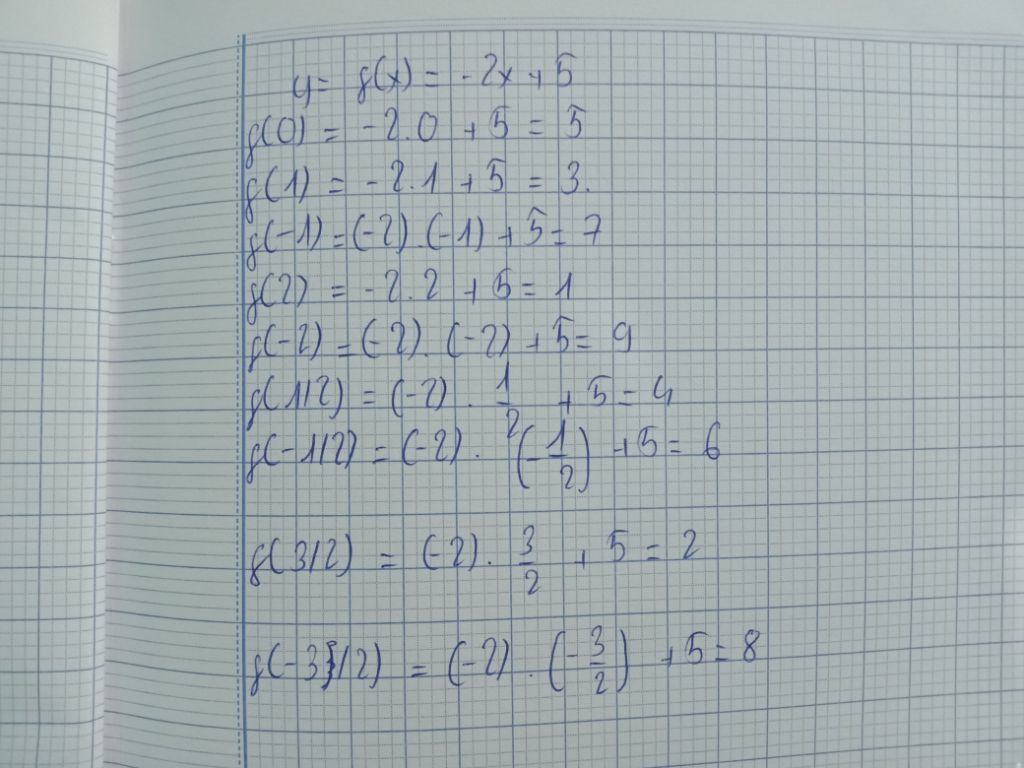 y = g(x) = -2x + 5
g(0) = -2.0 + 5 = 5
g(1) = -2.1 + 5 = 3.
g(-1) = (-2).(-1) + 5 = 7
g(2) = -2.2 + 5 = 1
g(-2) = (-2).(-2) + 5 = 9
g(1/2) = (-2). 1/2 + 5 = 4
g(-1/2) = (-2). (-1/2) + 5 = 6
g(3/2) = (-2). 3/2 + 5 = 2
g(-3/2) = (-2). (-3/2) + 5 = 8